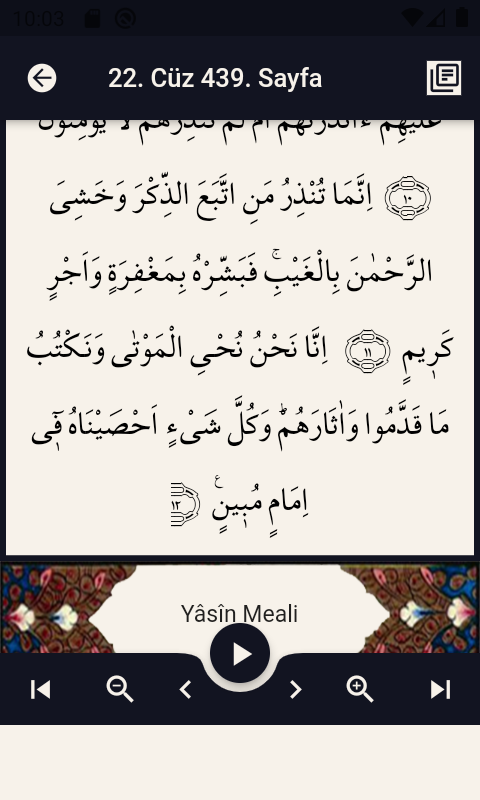 10:03
22. Cüz 439. Sayfa
عَلَيْهِمْ ءَاَنْذَرْتَهُمْ اَمْ لَمْ تُنْذِرْهُمْ لَا يُؤْمِنُونَ
﴿١٠﴾ اِنَّمَا تُنْذِرُ مَنِ اتَّبَعَ الذِّكْرَ وَخَشِىَ
الرَّحْمٰنَ بِالْغَيْبِۚ فَبَشِّرْهُ بِمَغْفِرَةٍ وَاَجْرٍ
كَر۪يمٍ ﴿١١﴾ اِنَّا نَحْنُ نُحْيِ الْمَوْتٰى وَنَكْتُبُ
مَا قَدَّمُوا وَاٰثَارَهُمْۜ وَكُلَّ شَىْءٍ اَحْصَيْنَاهُ ف۪ٓى
اِمَامٍ مُب۪ينٍ۟ ﴿١٢﴾
Yâsîn Meali